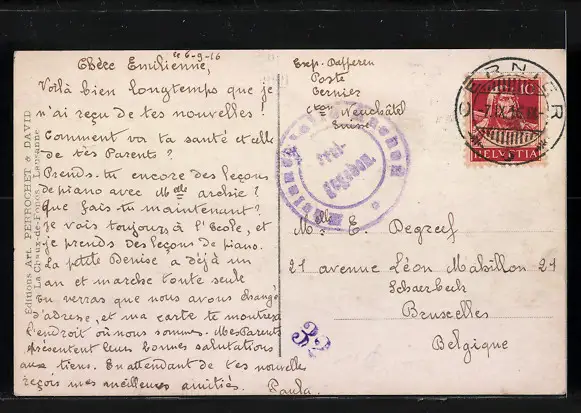 le 6-9-16
Chère Emilienne,
Voilà bien longtemps que je
n'ai reçu de tes nouvelles!
Comment va ta santé et celle
de tes Parents?
Prends-tu encore des leçons
de piano avec Melle archie?
Que fais-tu maintenant?
Je vais toujours à l'Ecole, et
je prends des leçons de piano.
La petite Denise a déjà un
an et marche toute seule
Tu verras que nous avons changé
d'adresse, et ma carte te montrera
l'endroit où nous sommes. Mes Parents
présentent leurs bonnes salutations
aux tiens. En attendant de tes nouvelles
reçois mes meilleures amitiés. Paula.
Editions Art. PERROCHET & DAVID
La Chaux-de-Fonds, Lausanne
Exp. Dafferen
Poste
Cernier
Cton Neuchâtel
Suisse
CERNIER
HELVETIA
Aachen
Freigegeben
33
Mlle E Degreef
21 avenue Léon Mabillon 21
Schaerbeek
Bruxelles
Belgique